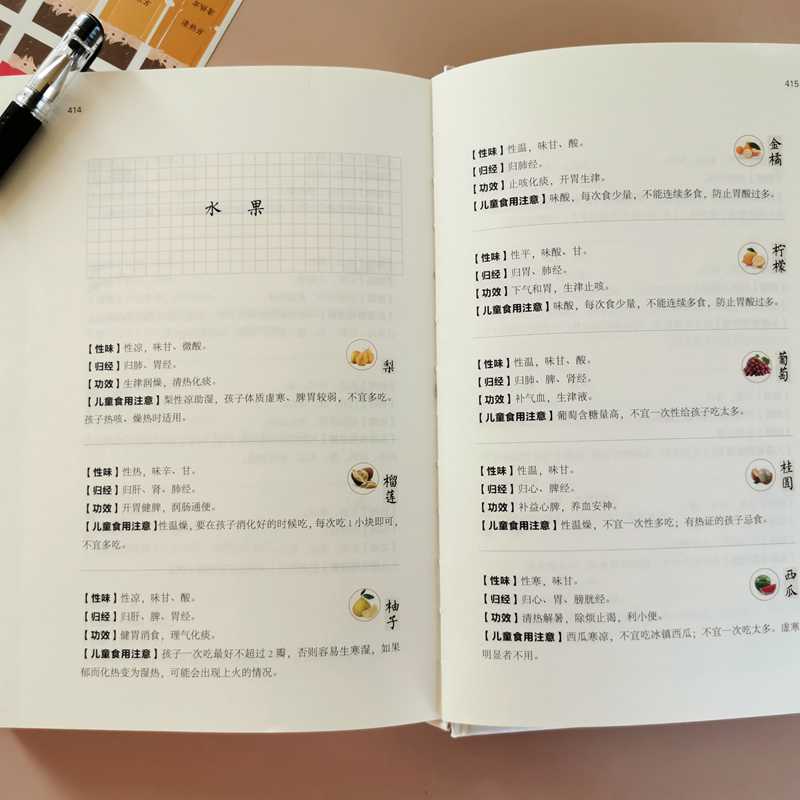 414
水 果
【性味】性凉，味甘、微酸。
【归经】归肺、胃经。
【功效】生津润燥，清热化痰。
【儿童食用注意】梨性凉助湿，孩子体质虚寒、脾胃较弱，不宜多吃。
孩子热咳、燥热时适用。
梨
【性味】性热，味辛、甘。
【归经】归肝、肾、肺经。
【功效】开胃健脾，润肠通便。
【儿童食用注意】性温燥，要在孩子消化好的时候吃，每次吃1小块即可，
不宜多吃。
榴莲
【性味】性凉，味甘、酸。
【归经】归肝、脾、胃经。
【功效】健胃消食，理气化痰。
【儿童食用注意】孩子一次吃最好不超过2瓣，否则容易生寒湿，如果
郁而化热变为湿热，可能会出现上火的情况。
柚子
415
【性味】性温，味甘、酸。
【归经】归肺经。
【功效】止咳化痰，开胃生津。
【儿童食用注意】味酸，每次食少量，不能连续多食，防止胃酸过多。
金橘
【性味】性平，味酸、甘。
【归经】归胃、肺经。
【功效】下气和胃，生津止咳。
【儿童食用注意】味酸，每次食少量，不能连续多食，防止胃酸过多。
柠檬
【性味】性温，味甘、酸。
【归经】归肺、脾、肾经。
【功效】补气血，生津液。
【儿童食用注意】葡萄含糖量高，不宜一次性给孩子吃太多。
葡萄
【性味】性温，味甘。
【归经】归心、脾经。
【功效】补益心脾，养血安神。
【儿童食用注意】性温燥，不宜一次性多吃；有热证的孩子忌食。
桂圆
【性味】性寒，味甘。
【归经】归心、胃、膀胱经。
【功效】清热解暑，除烦止渴，利小便。
【儿童食用注意】西瓜寒凉，不宜吃冰镇西瓜；不宜一次吃太多。虚寒
明显者不用。
西瓜